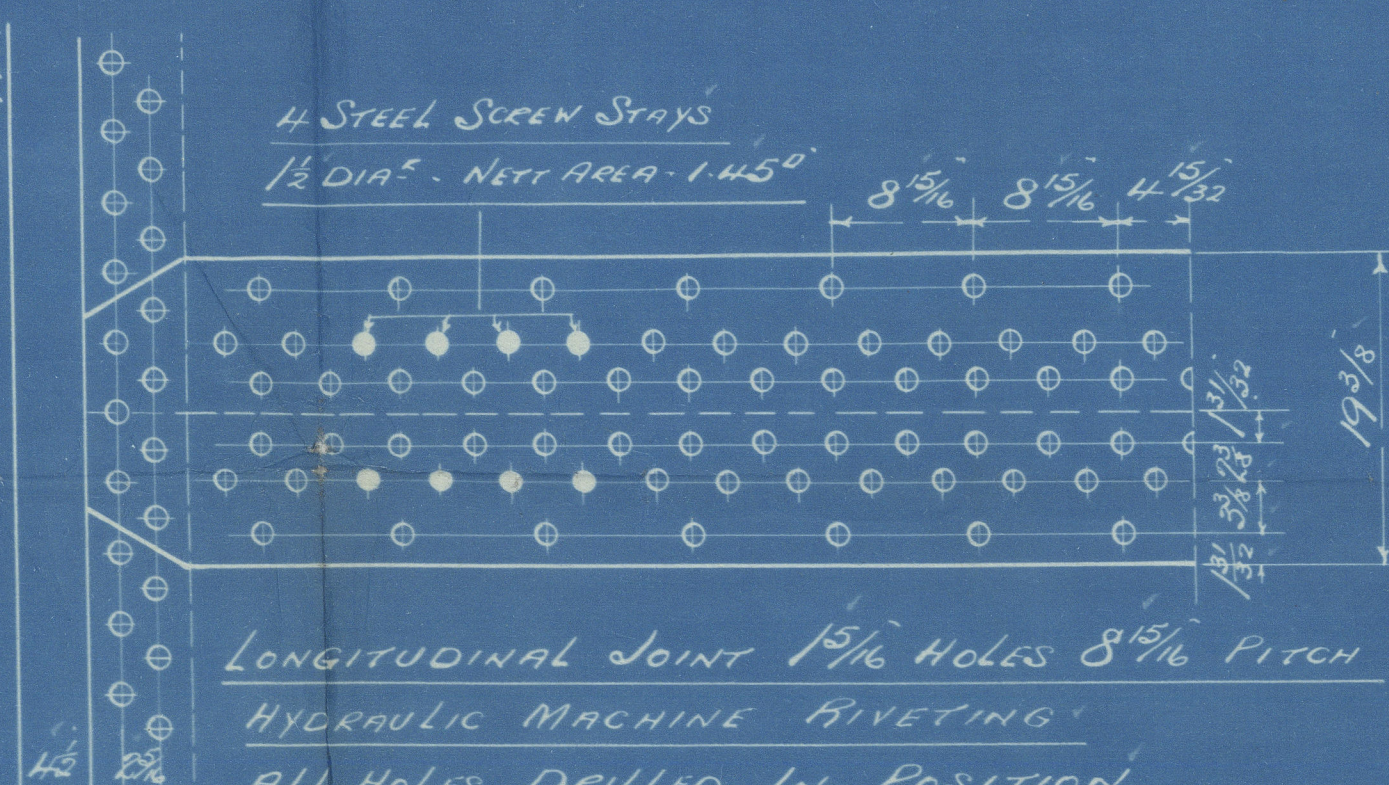 4 STEEL SCREW STAYS
1½ DIAR. NETT AREA. 1.45□"
8 15/16" 8 15/16" 4 15/32"
19 3/8"
1 31/32"
3 3/8"
1 31/32
LONGITUDINAL JOINT 15/16" HOLES 8 15/16" PITCH
HYDRAULIC MACHINE RIVETING
ALL HOLES DRILLED IN POSITION
4½" 2 5/16"